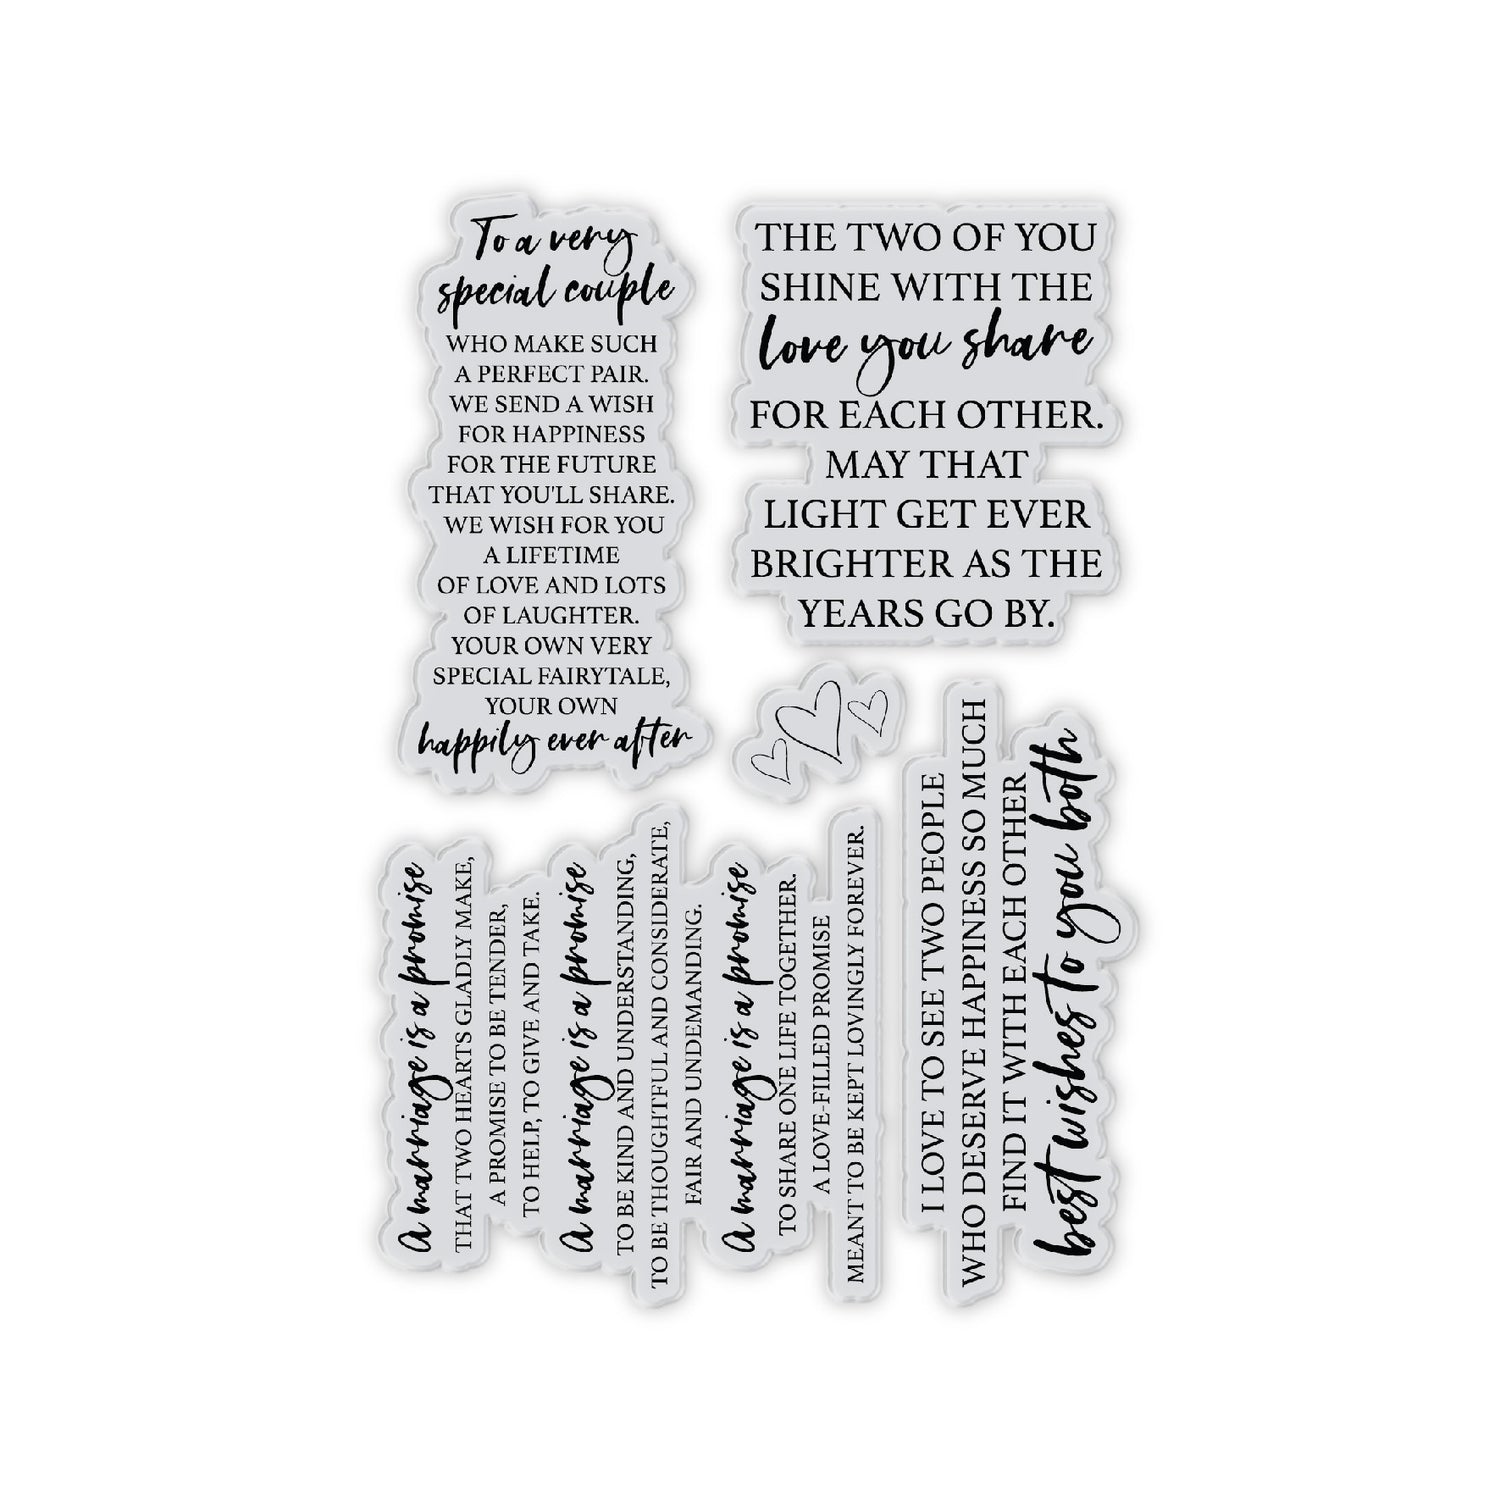 To a very
special couple
WHO MAKE SUCH
A PERFECT PAIR.
WE SEND A WISH
FOR HAPPINESS
FOR THE FUTURE
THAT YOU'LL SHARE.
WE WISH FOR YOU
A LIFETIME
OF LOVE AND LOTS
OF LAUGHTER.
YOUR OWN VERY
SPECIAL FAIRYTALE,
YOUR OWN
happily ever after
THE TWO OF YOU
SHINE WITH THE
love you share
FOR EACH OTHER.
MAY THAT
LIGHT GET EVER
BRIGHTER AS THE
YEARS GO BY.
A marriage is a promise
THAT TWO HEARTS GLADLY MAKE,
A PROMISE TO BE TENDER,
TO HELP, TO GIVE AND TAKE.
A marriage is a promise
TO BE KIND AND UNDERSTANDING,
TO BE THOUGHTFUL AND CONSIDERATE,
FAIR AND UNDEMANDING.
A marriage is a promise
TO SHARE ONE LIFE TOGETHER.
A LOVE-FILLED PROMISE
MEANT TO BE KEPT LOVINGLY FOREVER.
I LOVE TO SEE TWO PEOPLE
WHO DESERVE HAPPINESS SO MUCH
FIND IT WITH EACH OTHER
best wishes to you both